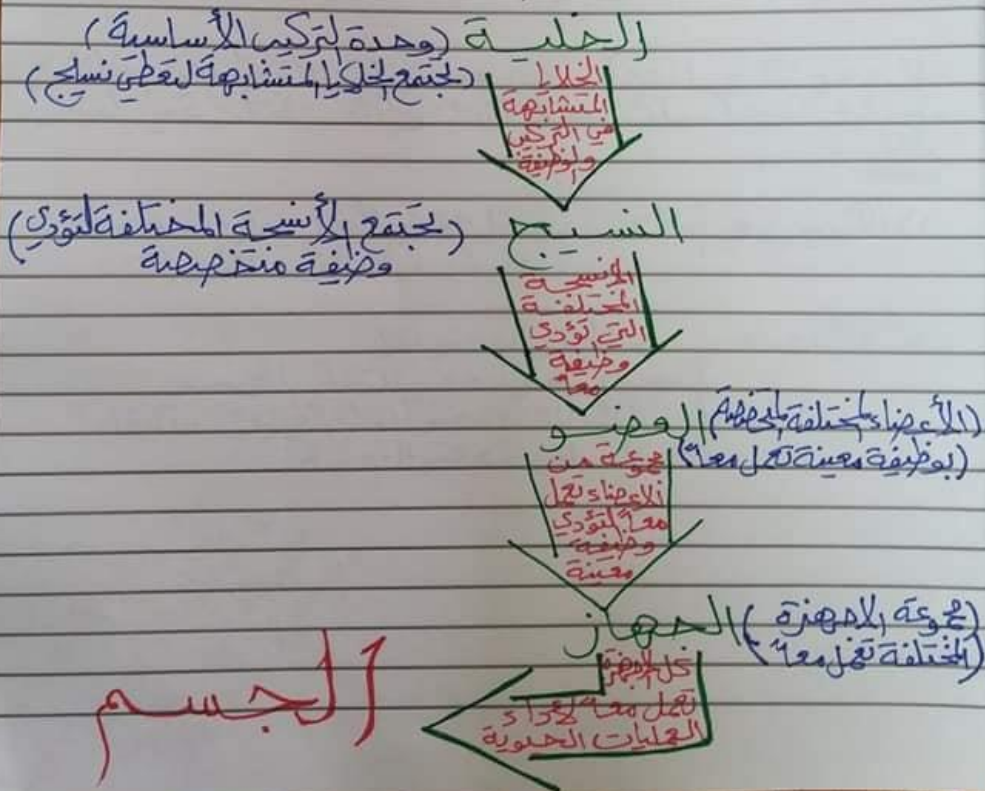 الخلية (وحدة لتركيب الأساسية)
(تجتمع الخلايا المتشابهة لتعطي نسيج)
الخلايا
المتشابهة
في التركيب
والوظيفة
النسيج (تجتمع الأنسجة المختلفة لتؤدي
وظيفة متخصصة)
الانسجة
المختلفة
التي تؤدي
وظيفة
معاً
العضو (الأعضاء المختلفة المتخصصة
بوظيفة معينة تعمل معاً)
مجموعة من
الاعضاء تعمل
معاً لتؤدي
وظيفة
معينة
الجهاز (مجموعة الاجهزة
المختلفة تعمل معاً)
كل الاجهزة
تعمل معاً لأداء
العمليات الحيوية
الجسم